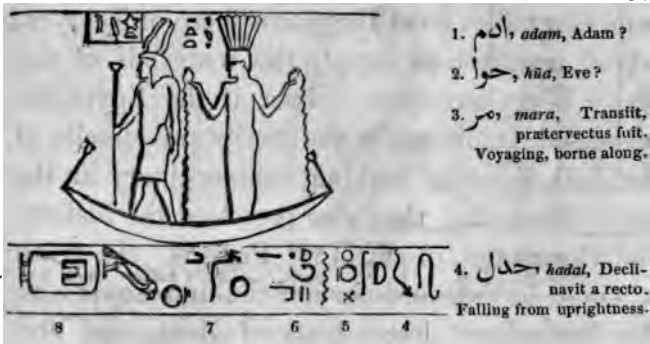 1. ادم, adam, Adam ?
2. حوا, hūa, Eve ?
3. مر, mara, Transiit,
prætervectus fuit.
Voyaging, borne along.
4. حدل, hadal, Decli-
navit a recto.
Falling from uprightness.
8 7 6 5 4